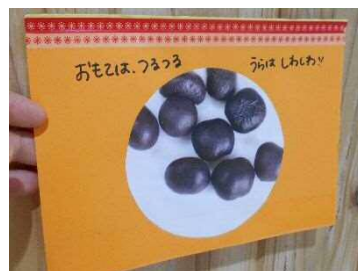 おもては、つるつる
うらは しわしわ!!